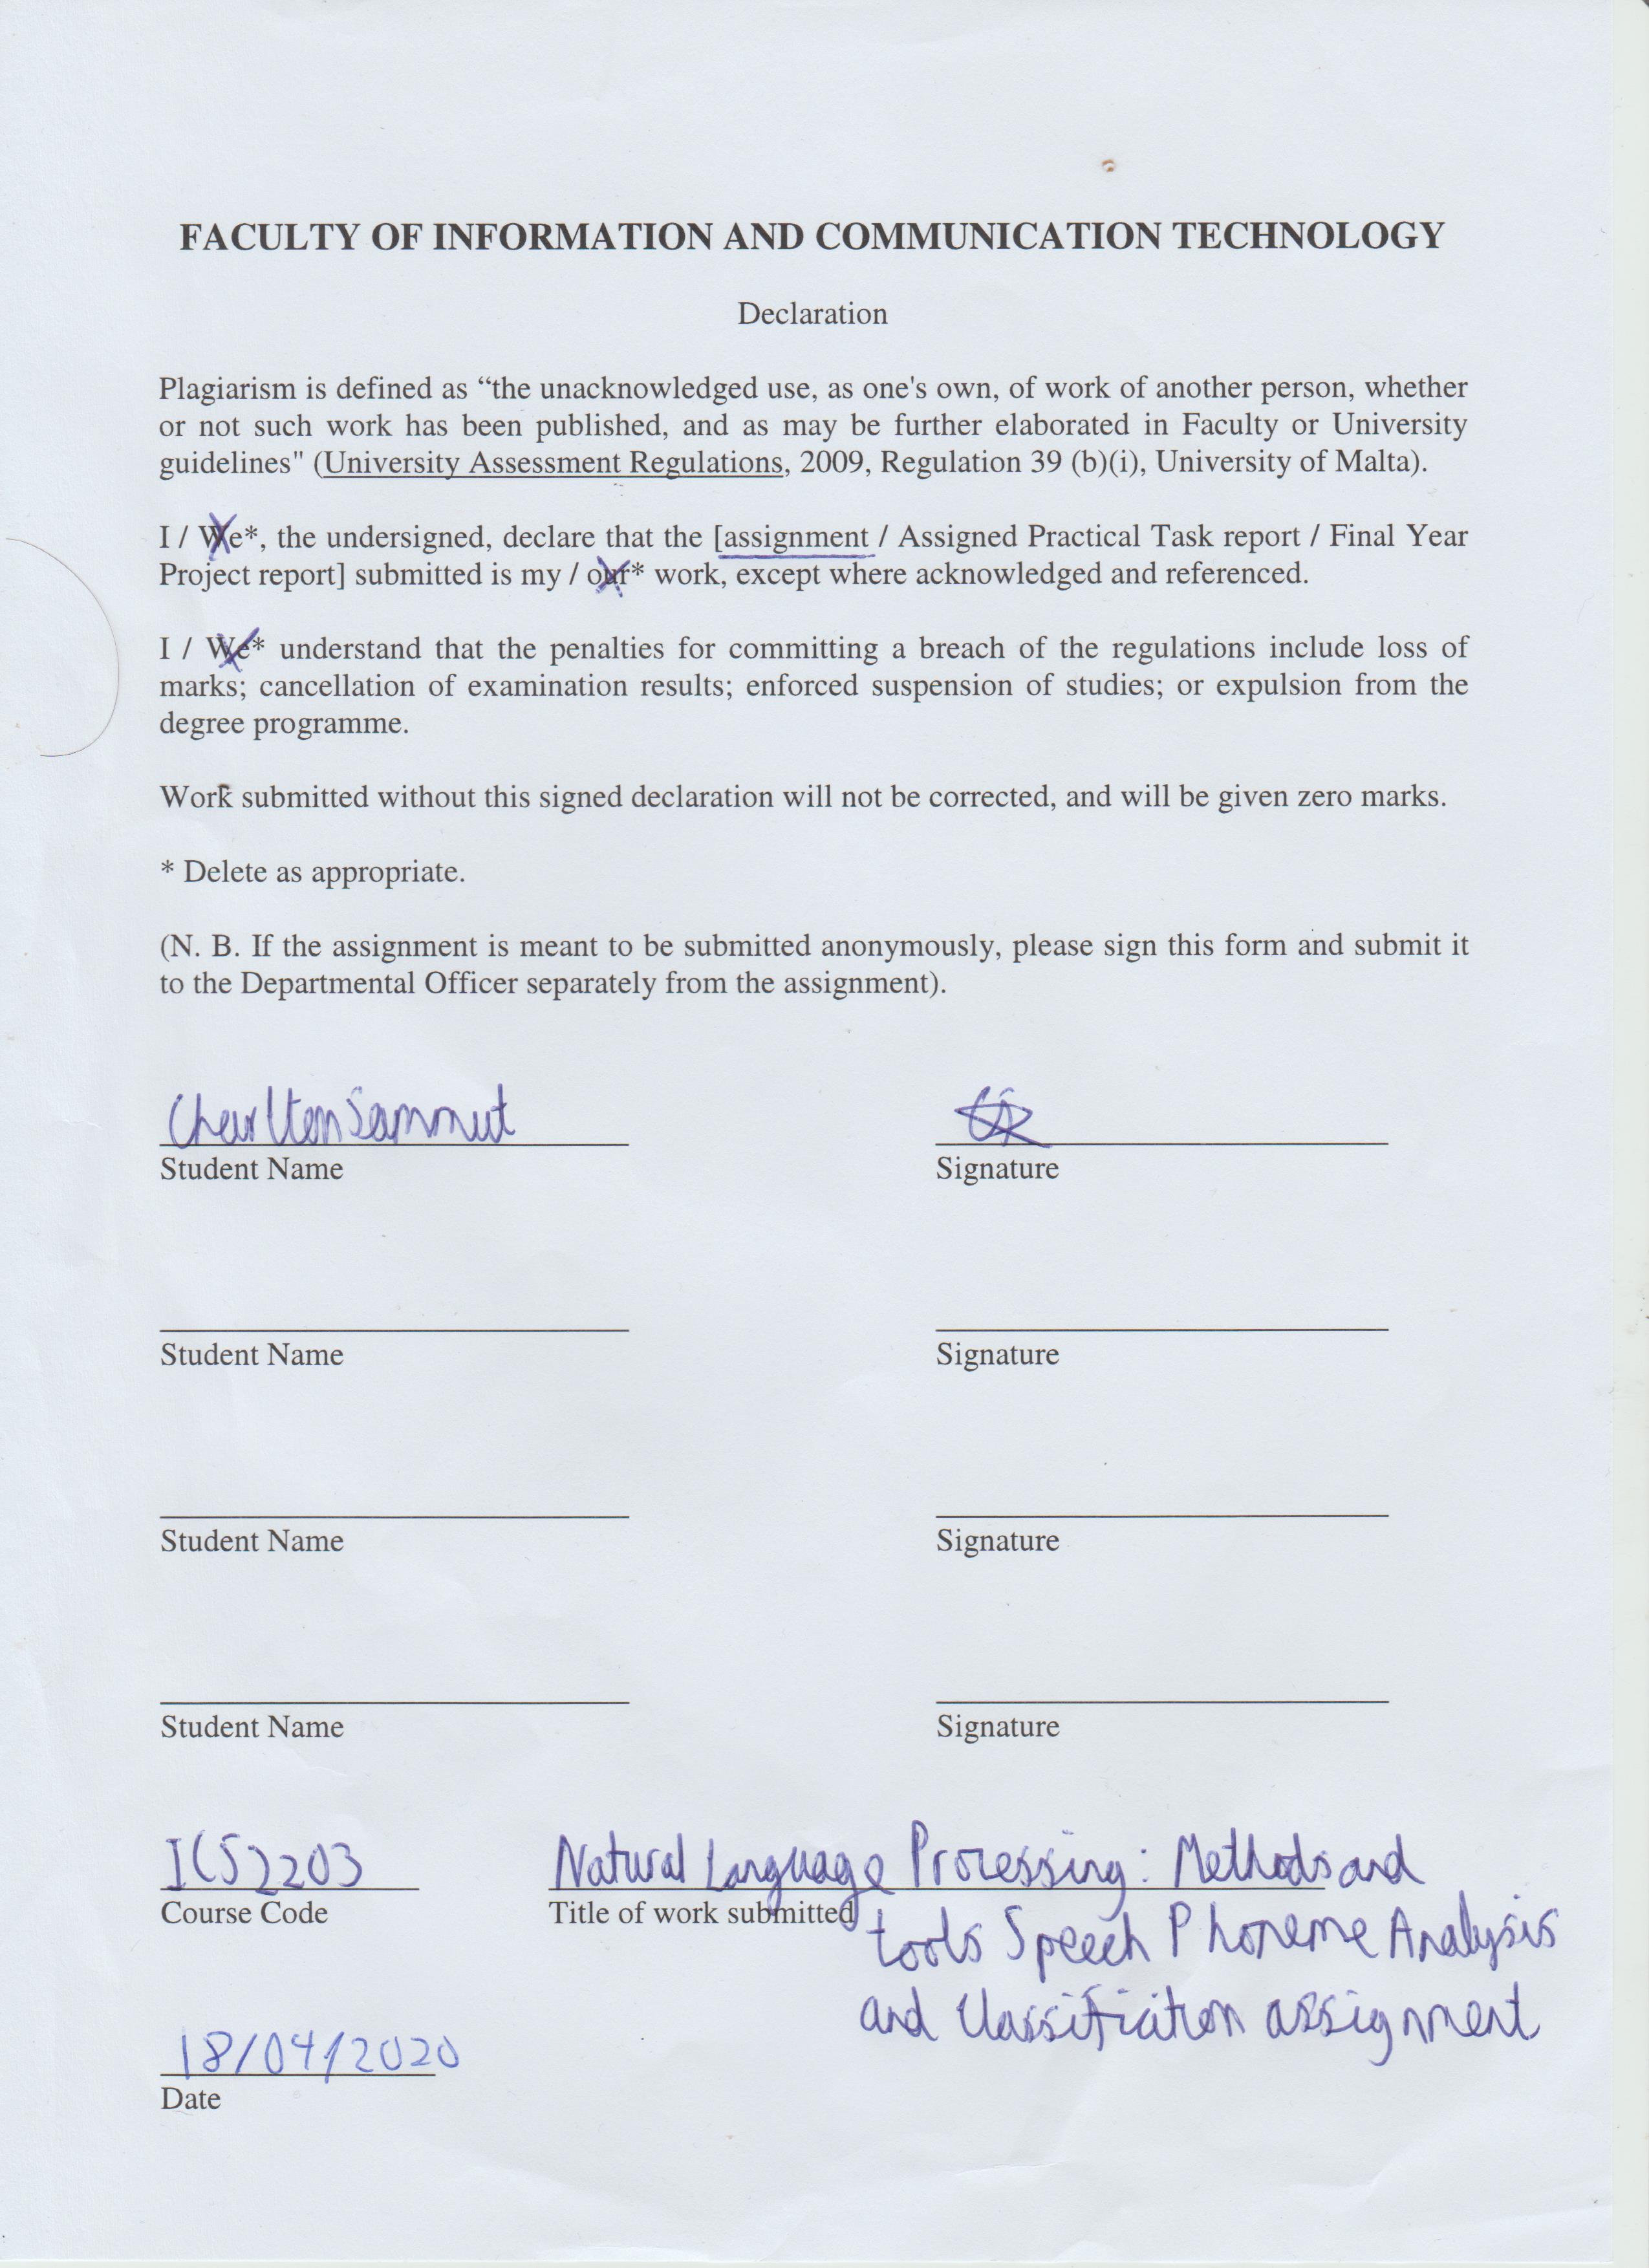 FACULTY OF INFORMATION AND COMMUNICATION TECHNOLOGY
Declaration
Plagiarism is defined as “the unacknowledged use, as one's own, of work of another person, whether
or not such work has been published, and as may be further elaborated in Faculty or University
guidelines" (University Assessment Regulations, 2009, Regulation 39 (b)(i), University of Malta).
I / We*, the undersigned, declare that the [assignment / Assigned Practical Task report / Final Year
Project report] submitted is my / our* work, except where acknowledged and referenced.
I / We* understand that the penalties for committing a breach of the regulations include loss of
marks; cancellation of examination results; enforced suspension of studies; or expulsion from the
degree programme.
Work submitted without this signed declaration will not be corrected, and will be given zero marks.
* Delete as appropriate.
(N. B. If the assignment is meant to be submitted anonymously, please sign this form and submit it
to the Departmental Officer separately from the assignment).
Charlton Sammut
Student Name Signature
Student Name Signature
Student Name Signature
Student Name Signature
ICS2203 Natural Language Processing: Methods and
Course Code Title of work submitted
tools Speech Phoneme Analysis
and Classification assignment
18/04/2020
Date